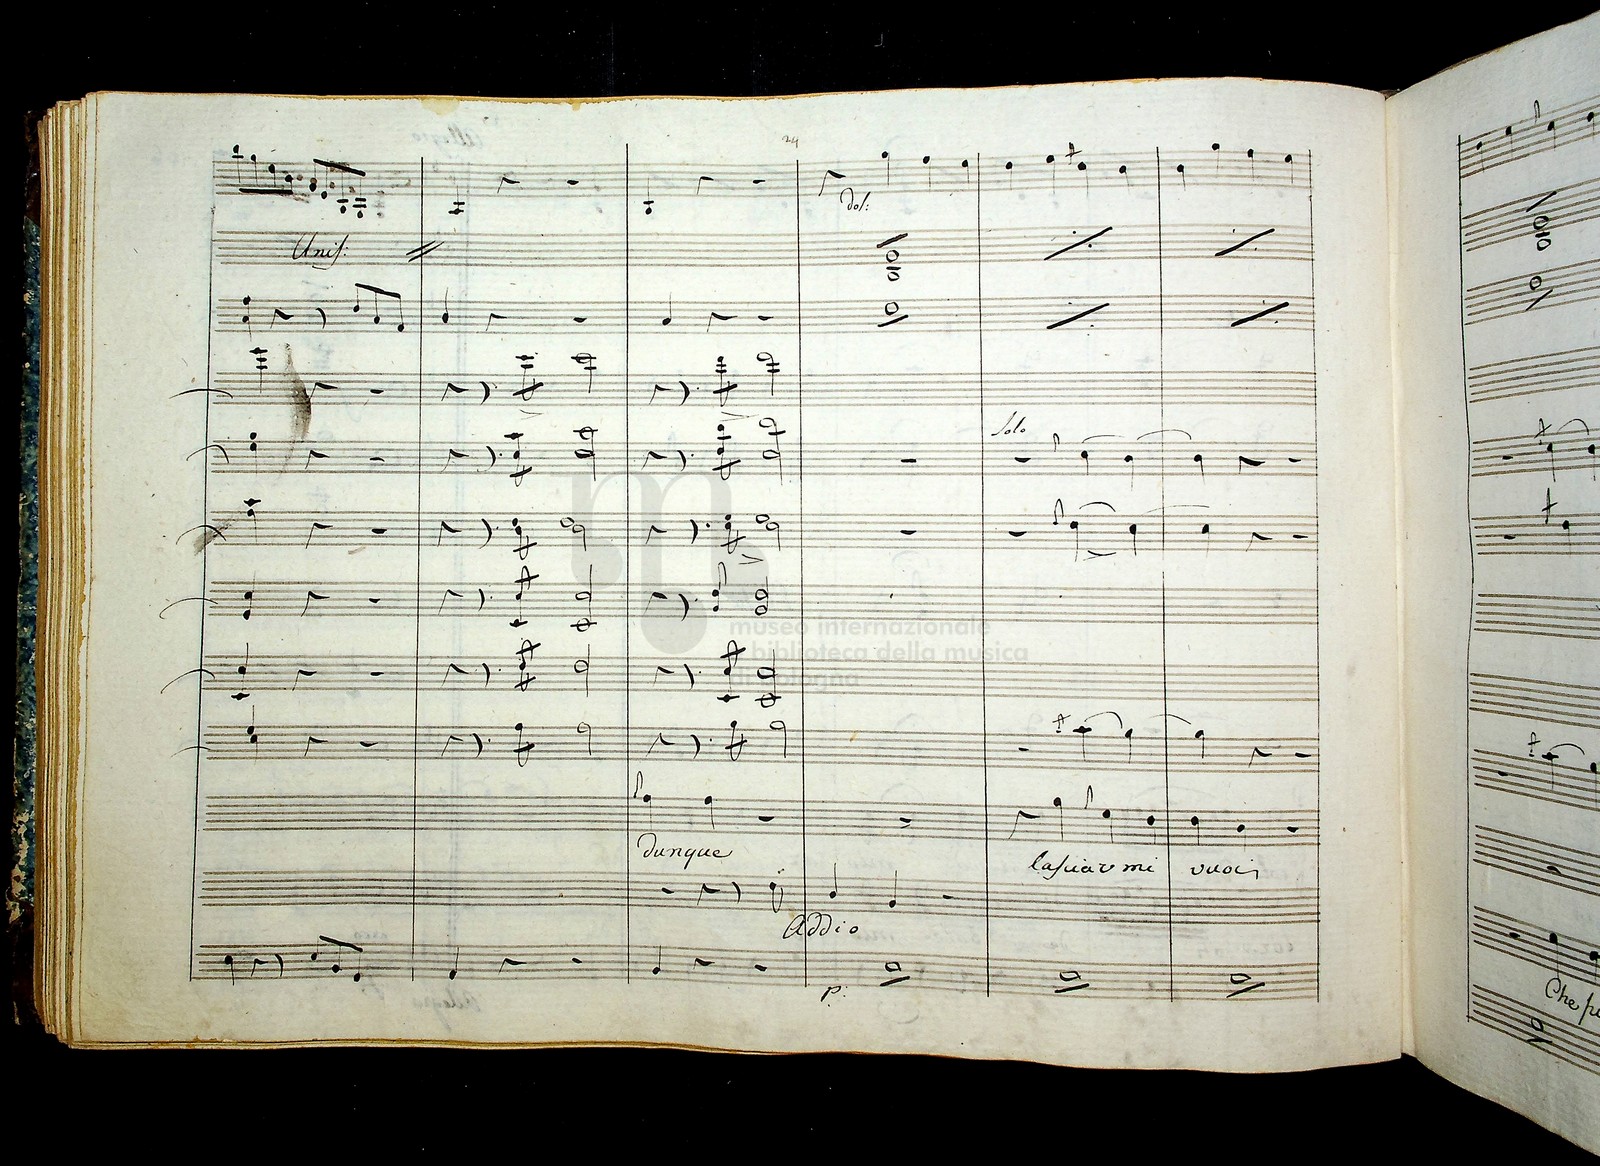 24
dol:
Unis:
Solo
museo internazionale
e biblioteca della musica
di bologna
dunque
lasciarmi vuoi
Addio
p:
Che